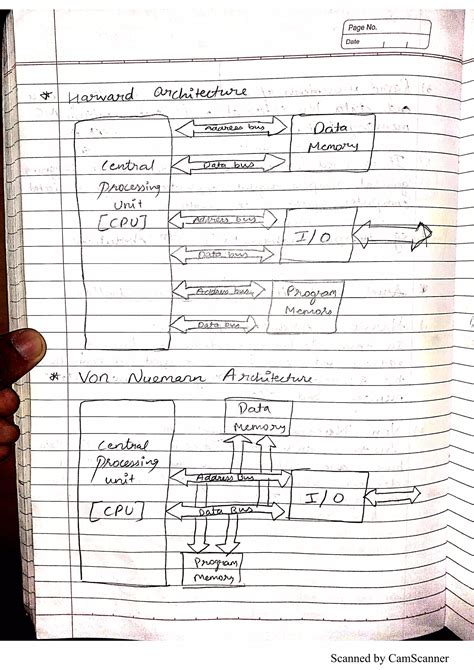 Page No.
Date
* Harward Architecture
Address bus
Data
Memory
Data bus
Central
Processing
Unit
[CPU]
Address bus
I/O
Data bus
Address bus
Program
Memory
Data Bus
* Von Nuemann Architecture
Data
Memory
Central
Processing
unit
Address Bus
I/O
[CPU]
Data Bus
Program
Memory
Scanned by CamScanner